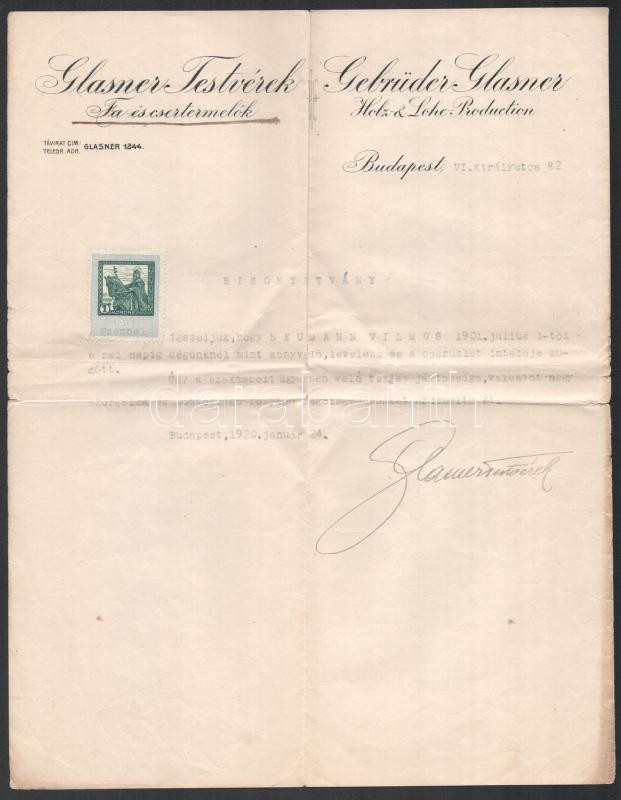 Glasner Testvérek
Fa- és csertermelők
Gebrüder Glasner
Holz- & Lohe-Production
TÁVIRAT CIM:
TELEGR. ADR. GLASNER 1844.
Budapest, VI.Királyutca 82
BIZONYITVÁNY
1 KORONA
Ezennel
igazoljuk, hogy NEUMANN VILMOS 1901.julius 1-től
a mai napig cégünknél mint könyvelő, levelező és a cserüzlet intézője mű-
ödött.
Ugy a szakmabeli való teljes valamint nagy
Budapest, 1920.január 24.
Glasner testvérek
darabanth